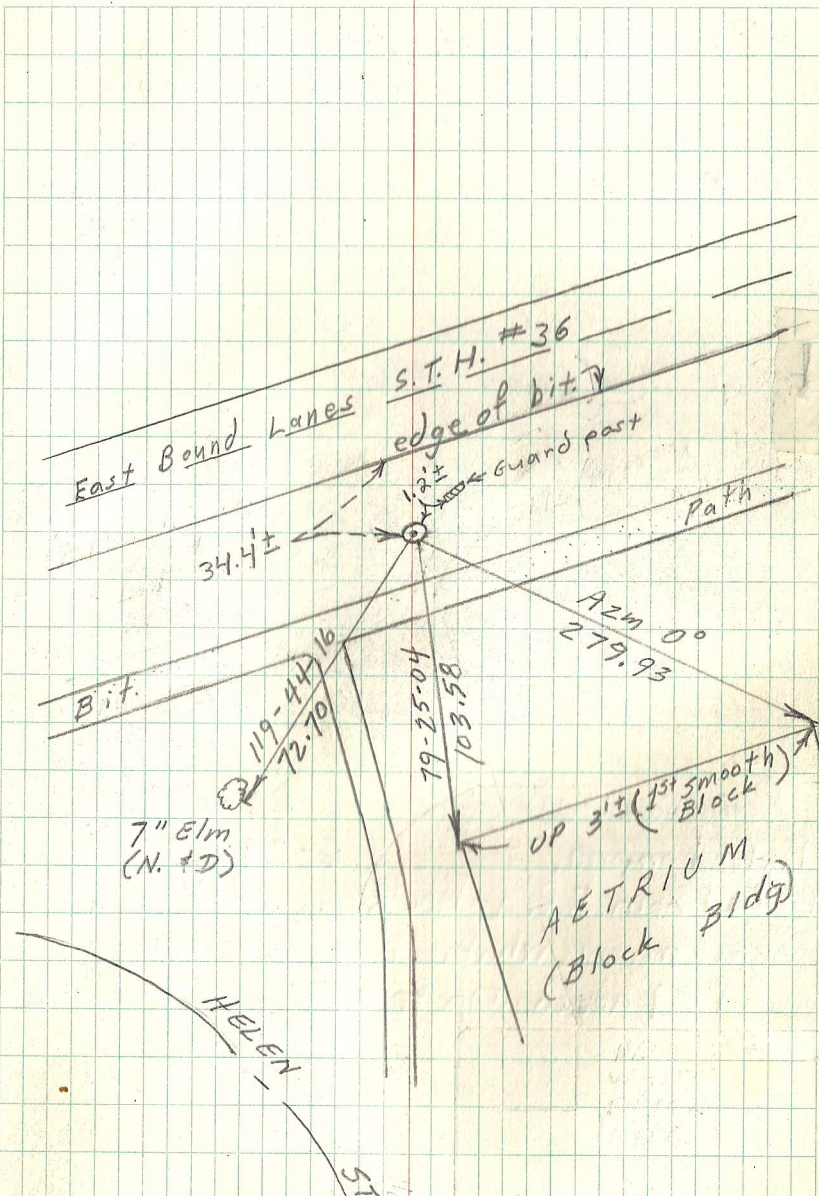 East Bound Lanes S.T.H. #36
edge of bit.
1.2'±
Guard post
34.4'±
Path
Azm 0°
279.93
Bit.
119-44-16
72.70
79-25-04
103.58
UP 3'± (1st smooth)
Block
7" Elm
(N. & D)
AETRIUM
(Block Bldg)
HELEN
ST